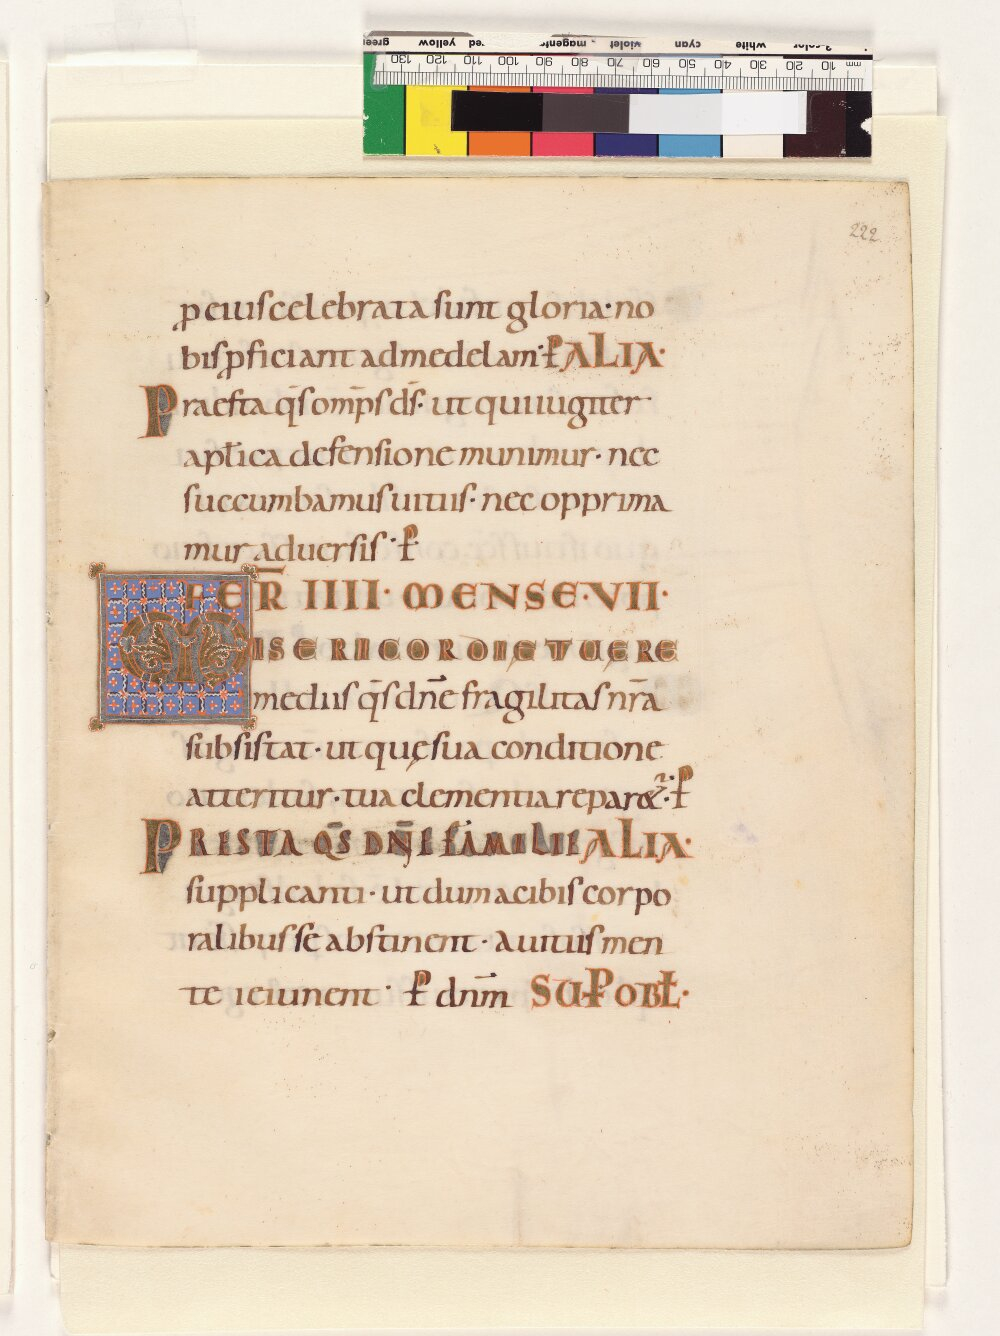 green yellow red magenta violet cyan white 3-color
130 120 110 100 90 80 70 60 50 40 30 20 10 mm
222
p̱ eius celebrata sunt gloria· no
bis ꝓficiant ad medelam· ꝑ ALIA·
Praesta q̄s om̄ps d̄s· ut qui iugiter
aptīca defensione munimur· nec
succumbamus uitiis· nec opprima
mur aduersis· ꝑ
FER̄ IIII· MENSE·VII·
MISERICORDIE TUE RE
mediis q̄s dn̄e fragilitas nr̄a
subsistat· ut quę sua conditione
atteritur· tua clementia reparet᷑&·ꝑ
PRESTA Q̄S DN̄E FAMILIE ALIA·
supplicanti· ut dum a cibis corpo
ralibus se abstinent· A uitiis men
te ieiunent· ꝑ dn̄m SUP OBĿ·